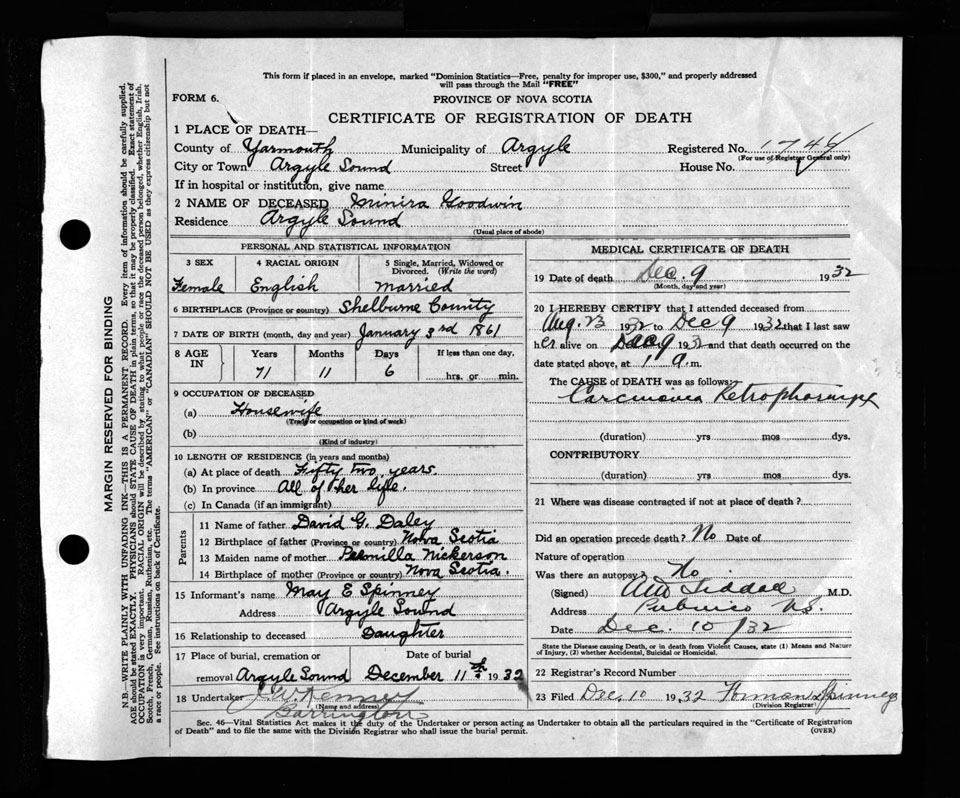 This form if placed in an envelope, marked "Dominion Statistics—Free, penalty for improper use, $300," and properly addressed
will pass through the Mail "FREE"
FORM 6.
PROVINCE OF NOVA SCOTIA
CERTIFICATE OF REGISTRATION OF DEATH
1 PLACE OF DEATH—
County of Yarmouth Municipality of Argyle Registered No. 1744
(For use of Registrar General only)
City or Town Argyle Sound Street House No.
If in hospital or institution, give name
2 NAME OF DECEASED Minira Goodwin
Residence Argyle Sound
(Usual place of abode)
PERSONAL AND STATISTICAL INFORMATION
3 SEX 4 RACIAL ORIGIN 5 Single, Married, Widowed or
Divorced. (Write the word)
Female English Married
6 BIRTHPLACE (Province or country) Shelburne County
7 DATE OF BIRTH (month, day and year) January 3rd 1861
8 AGE IN Years Months Days If less than one day,
71 11 6 hrs. or min.
9 OCCUPATION OF DECEASED
(a) Housewife
(Trade or occupation or kind of work)
(b)
(Kind of industry)
10 LENGTH OF RESIDENCE (in years and months)
(a) At place of death Fifty two years.
(b) In province All of her life.
(c) In Canada (if an immigrant)
Parents
11 Name of father David G. Daley
12 Birthplace of father (Province or country) Nova Scotia
13 Maiden name of mother Nickerson
14 Birthplace of mother (Province or country) Nova Scotia.
15 Informant's name May E Spinney
Address Argyle Sound
16 Relationship to deceased Daughter
17 Place of burial, cremation or Date of burial
removal Argyle Sound December 11th 1932
18 Undertaker J. W. Kenney
(Name and address)
Barrington
MEDICAL CERTIFICATE OF DEATH
19 Date of death Dec. 9 1932
(Month, day and year)
20 I HEREBY CERTIFY that I attended deceased from
Aug. 23 1932 to Dec 9 1932 that I last saw
her alive on Dec 9 1932 and that death occurred on the
date stated above, at 1 a m.
The CAUSE of DEATH was as follows:
Carcinoma
(duration) yrs mos dys.
CONTRIBUTORY
(duration) yrs mos dys.
21 Where was disease contracted if not at place of death?
Did an operation precede death? No Date of
Nature of operation
Was there an autopsy? No
(Signed) M.D.
Address Pubnico N.S.
Date Dec. 10/32
State the Disease causing Death, or in death from Violent Causes, state (1) Means and Nature
of Injury, (2) whether Accidental, Suicidal or Homicidal.
22 Registrar's Record Number
23 Filed Dec. 10 1932 Spinney
(Division Registrar)
Sec. 46—Vital Statistics Act makes it the duty of the Undertaker or person acting as Undertaker to obtain all the particulars required in the "Certificate of Registration
of Death" and to file the same with the Division Registrar who shall issue the burial permit.
(OVER)
MARGIN RESERVED FOR BINDING
N.B—WRITE PLAINLY WITH UNFADING INK—THIS IS A PERMANENT RECORD. Every item of information should be carefully supplied.
AGE should be stated EXACTLY. PHYSICIANS should STATE CAUSE OF DEATH in plain terms, so that it may be properly classified. Exact statement of
OCCUPATION is very important. RACIAL ORIGIN will be described by stating to what people or race the deceased person belonged, whether English, Irish,
Scotch, French, German, Russian, Ruthenian, etc. The terms "AMERICAN" or "CANADIAN" SHOULD NOT BE USED as they express citizenship but not
a race or people. See instructions on back of Certificate.